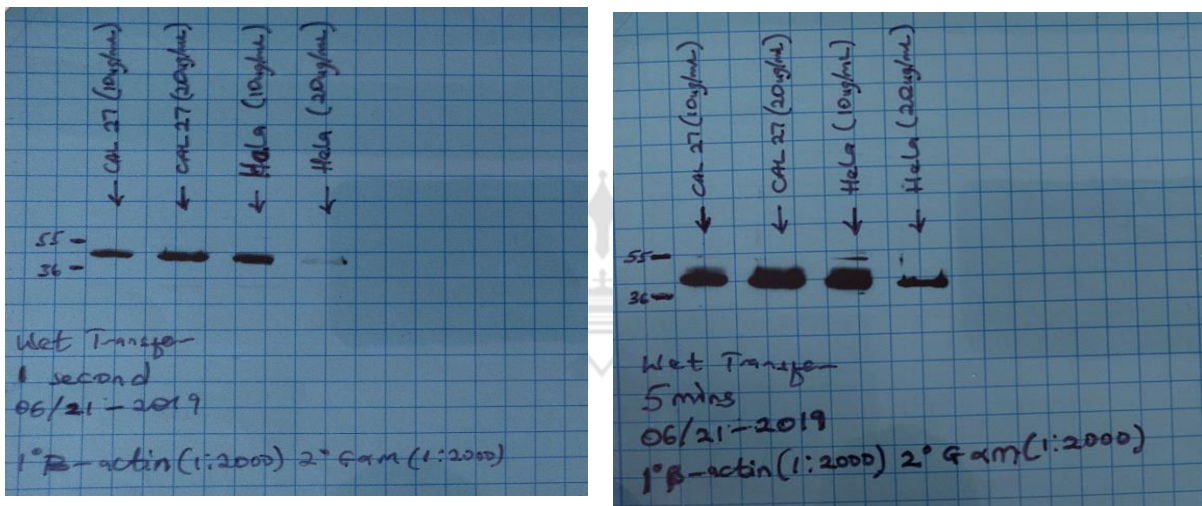 ← CAL 27 (10ug/mL)
← CAL 27 (20ug/mL)
← HeLa (10ug/mL)
← HeLa (20ug/mL)
55 -
36 -
Wet Transfer
1 second
06/21-2019
1° B-actin (1:2000) 2° GαM (1:2000)
← CAL 27 (10ug/mL)
← CAL 27 (20ug/mL)
← HeLa (10ug/mL)
← HeLa (20ug/mL)
55 -
36 -
Wet Transfer
5 mins
06/21-2019
1° β-actin (1:2000) 2° GαM (1:2000)